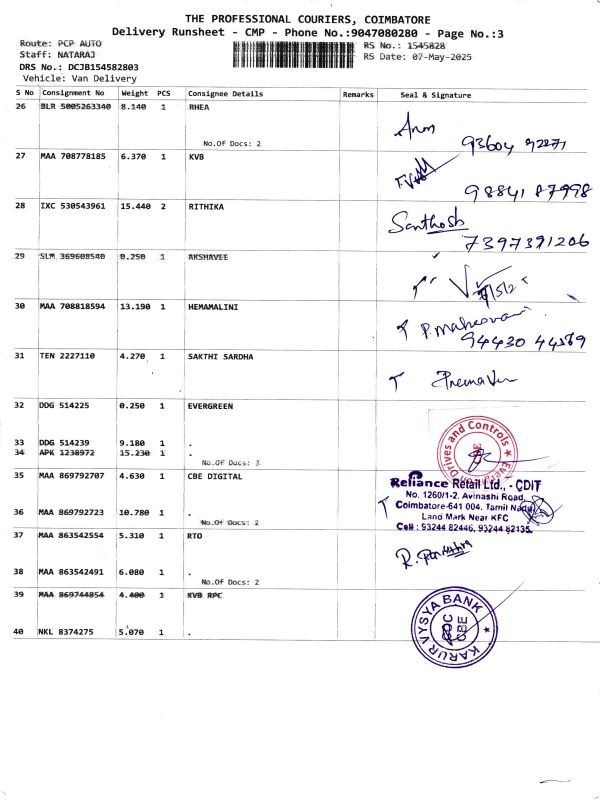 THE PROFESSIONAL COURIERS, COIMBATORE
Delivery Runsheet - CMP - Phone No.:9047080280 - Page No.:3
Route: PCP AUTO
Staff: NATARAJ
DRS No.: DCJB154582803
Vehicle: Van Delivery
RS No.: 1545828
RS Date: 07-May-2025
S No Consignment No Weight PCS Consignee Details Remarks Seal & Signature
26 BLR 5005263340 8.140 1 RHEA
No.Of Docs: 2
Arun
93604 92271
27 MAA 708778185 6.370 1 KVB
98841 87998
28 IXC 530543961 15.440 2 RITHIKA
Santhosh
7397391206
29 SLM 369608540 0.250 1 AKSHAVEE
30 MAA 708818594 13.190 1 HEMAMALINI
P. Maheswari
94430 44569
31 TEN 2227110 4.270 1 SAKTHI SARDHA
32 DDG 514225 0.250 1 EVERGREEN
33 DDG 514239 9.180 1 .
34 APK 1238972 15.230 1 .
No.Of Docs: 3
Drives and Controls
35 MAA 869792707 4.630 1 CBE DIGITAL
Reliance Retail Ltd., - CDIT
No. 1260/1-2, Avinashi Road,
Coimbatore-641 004. Tamil Nadu
Land Mark Near KFC
Cell : 93244 82446, 93244 82135.
36 MAA 869792723 10.780 1 .
No.Of Docs: 2
37 MAA 863542554 5.310 1 RTO
38 MAA 863542491 6.080 1 .
No.Of Docs: 2
39 MAA 869744854 4.400 1 KVB RPC
40 NKL 8374275 5.070 1 .
KARUR VYSYA BANK
CBE